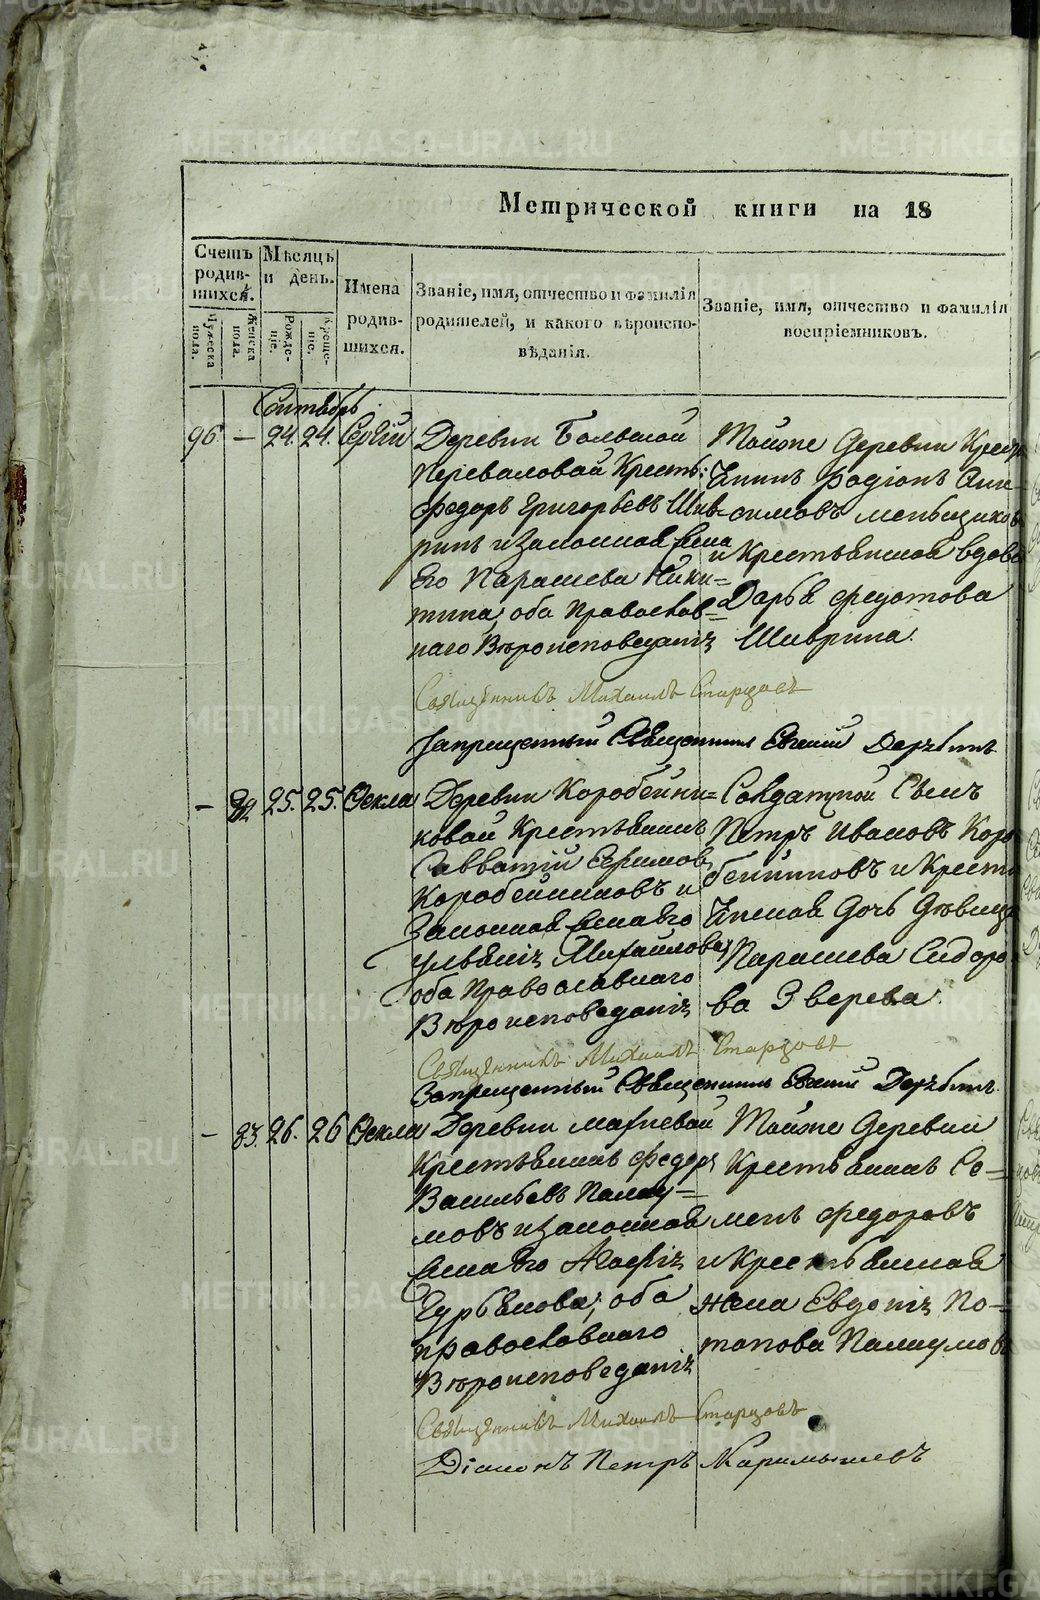 Метрической книги на 18
Счетъ родив-шихся.
Мужеска пола.
Женска пола.
Мѣсяцъ и день.
Рожде-ніе.
Креще-ніе.
Имена родив-шихся.
Званіе, имя, отчество и фамилія родителей, и какого вѣроиспо-вѣданія.
Званіе, имя, отчество и фамилія воспріемниковъ.
Сентябрь
96. — 24. 24. Сергій
Деревни Большой
Переваловой Крестья:
Федоръ Григорьевъ Шив-
ринъ и законная жена
Его Парасева Ники=
тина, оба Православ=
наго Вѣроисповеданія
Тойже Деревни Крест
Родіонъ
симовъ меньщиковъ
и Крестьянская вдова
Дарья Федотова
Шиврина.
Священникъ Михаилъ Старцовъ
Запрещенный Священникъ Евгений
— 82. 25. 25. Фекла
Деревни Коробейни=
ковой Крестьянинъ
Савватій Ефимовъ
Коробейниковъ и
Законная жена Его
Ульянія Михайлова
оба Православнаго
Вѣроисповеданія
Солдатской Сынъ
Петръ Ивановъ Коро
бейниковъ и Крестья
нская дочь Дѣвица
Парасева Сидоро
ва Зверева.
Священникъ Михаилъ Старцовъ
Запрещенный Священникъ Евгений
— 83. 26. 26 Фекла
Деревни
Крестьянинъ Федоръ
Васильевъ Пашку=
мовъ и законная
жена Его Агафія
Гурьянова, оба
православнаго
Вѣроисповеданія
Тойже Деревни
Крестьянинъ Се=
менъ Федоровъ
и Крестьянская
жена Евдокія По=
тапова
Священникъ Михаилъ Старцовъ
Діаконъ Петръ Карамышевъ
METRIKI.GASO-URAL.RU